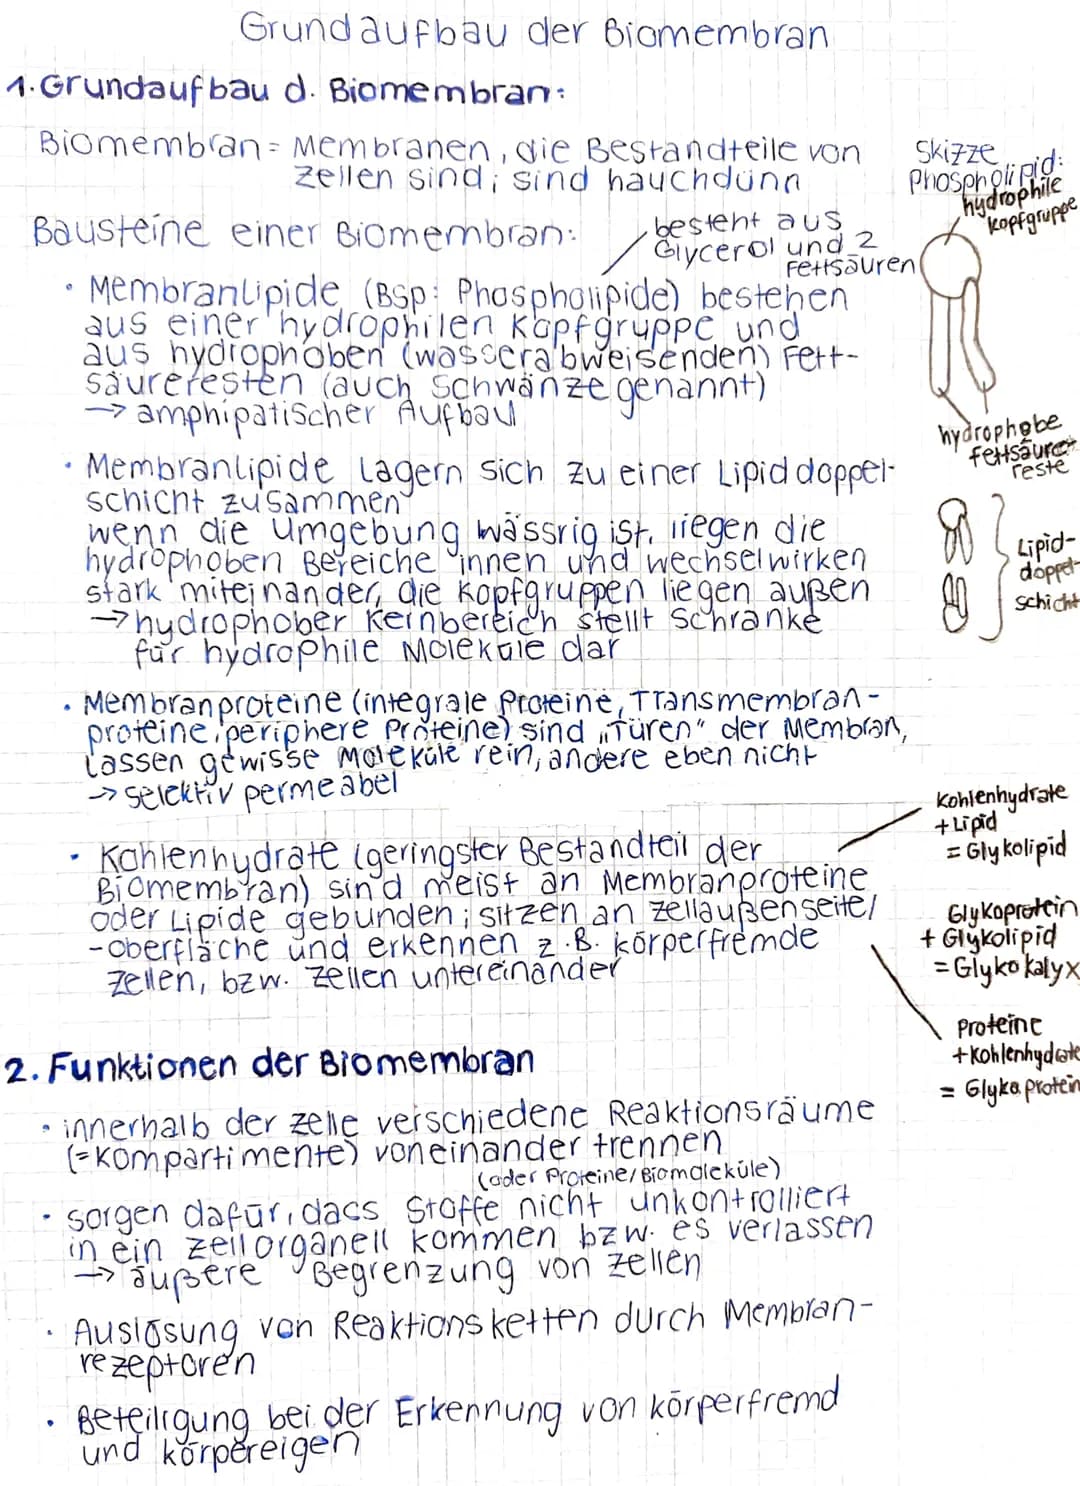 Grundaufbau der Biomembran
1. Grundaufbau d. Biomembran:
Biomembran = Membranen, die Bestandteile von
Zellen sind; sind hauchdünn
Skizze
Phospholipid:
hydrophile
Kopfgruppe
Bausteine einer Biomembran:
besteht aus
Glycerol und 2
Fettsäuren
• Membranlipide (Bsp: Phospholipide) bestehen
aus einer hydrophilen Kopfgruppe und
aus hydrophoben (wasserabweisenden) Fett-
säureresten (auch Schwänze genannt)
→ amphipatischer Aufbau
hydrophobe
fettsäure-
reste
• Membranlipide lagern sich zu einer Lipiddoppel-
schicht zusammen
wenn die Umgebung wässrig ist, liegen die
hydrophoben Bereiche innen und wechselwirken
stark miteinander, die Kopfgruppen liegen außen
→ hydrophober Kernbereich stellt Schranke
für hydrophile Moleküle dar
Lipid-
doppel-
schicht
• Membranproteine (integrale Proteine, Transmembran-
proteine, periphere Proteine) sind „Türen" der Membran,
lassen gewisse Moleküle rein, andere eben nicht
→ selektiv permeabel
• Kohlenhydrate (geringster Bestandteil der
Biomembran) sind meist an Membranproteine
oder Lipide gebunden; sitzen an Zellaußenseite/
-oberfläche und erkennen z.B. körperfremde
Zellen, bzw. Zellen untereinander
Kohlenhydrate
+ Lipid
= Glykolipid
Glykoprotein
+ Glykolipid
= Glykokalyx
Proteine
+ Kohlenhydrate
= Glykoprotein
2. Funktionen der Biomembran
• innerhalb der Zelle verschiedene Reaktionsräume
(= Kompartimente) voneinander trennen
(oder Proteine/Biomoleküle)
• sorgen dafür, dass Stoffe nicht unkontrolliert
in ein Zellorganell kommen bzw. es verlassen
→ äußere Begrenzung von Zellen
• Auslösung von Reaktionsketten durch Membran-
rezeptoren
• Beteiligung bei der Erkennung von körperfremd
und körpereigen